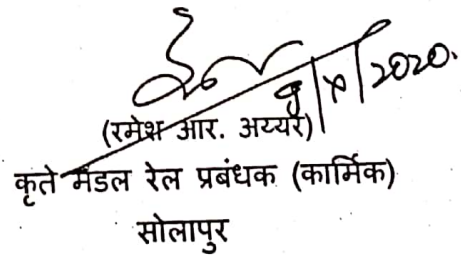 9/x/2020.
(रमेश आर. अय्यर)
कृते मंडल रेल प्रबंधक (कार्मिक)
सोलापुर